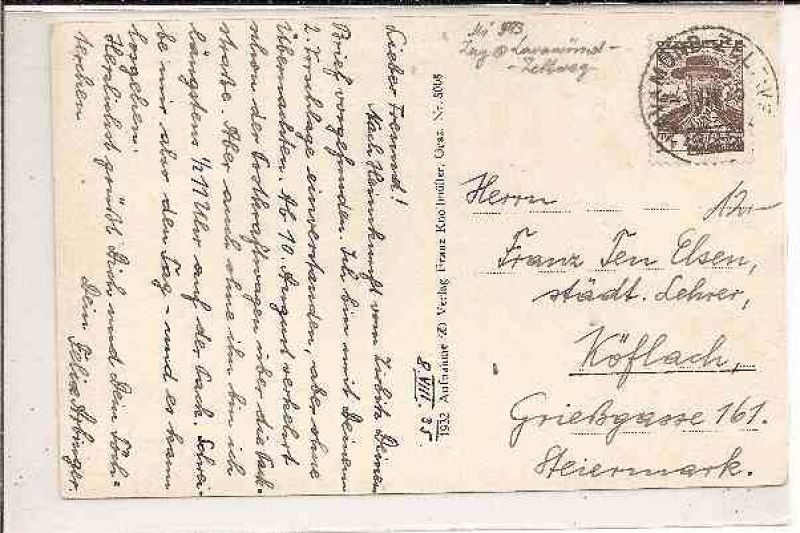 Lieber Freund!
Nach Heimkunft vom Urlaub Deinen
Brief vorgefunden. Ich bin mit Deinem
2. Vorschlage einverstanden, aber ohne
Übernachten. Ab 10. August verkehrt
schon der Postkraftwagen über die Pack-
straße. Aber auch ohne ihn bin ich
längstens ½ 11 Uhr auf der Pack. Schrei-
be mir also den Tag – und es kann
losgehen.
Herzlichst grüßt Dich und Dein Töch-
terchen
Dein Felix
8.VIII.35.
1932 Aufnahme (Z) Verlag Franz Knollmüller, Graz. Nr. 5008
Mi 573
Zug Lavamünd-
-Zeltweg
LAVAMÜND-ZELTWEG
Herrn
12.-
Franz Ten Elsen,
städt. Lehrer,
Köflach,
Grießgasse 161.
Steiermark.